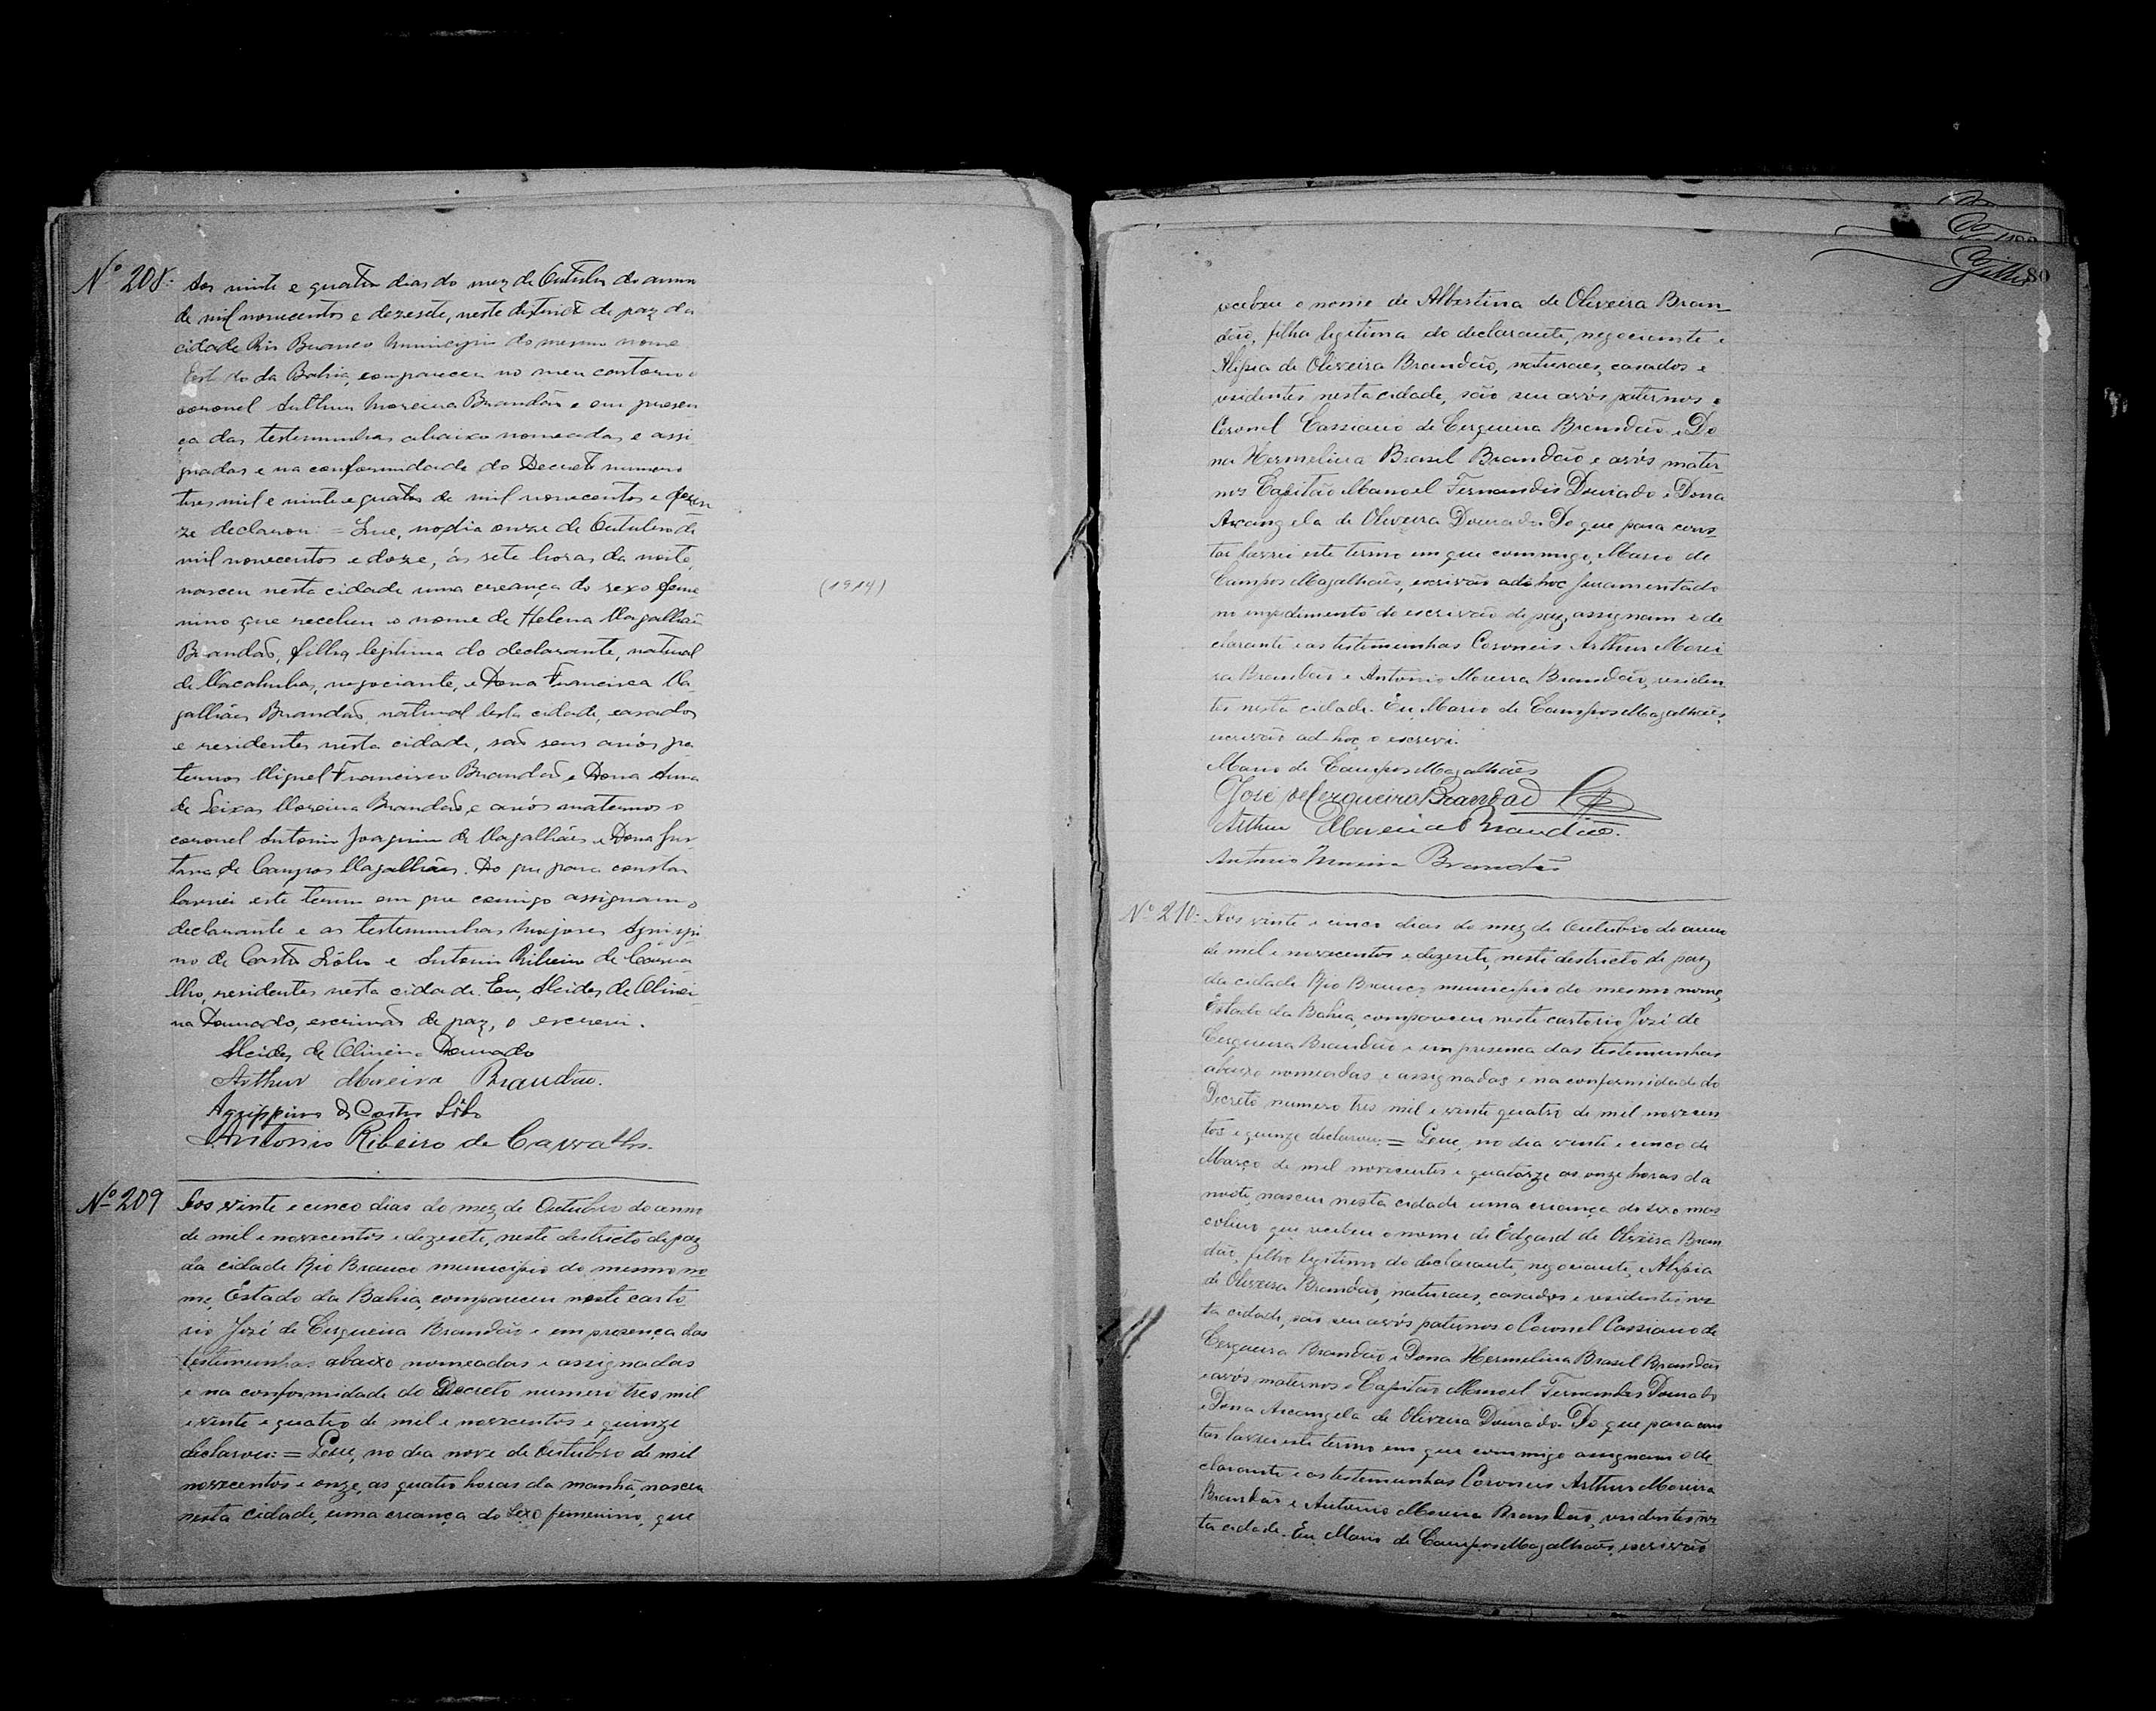 Nº 208. Aos vinte e quatro dias do mez de Outubro do anno
de mil novecentos e dezesete, neste destricto de paz da
cidade Rio Branco Municipio do mesmo nome
Estado da Bahia, compareceu no meu cartorio o
coronel Arthur Moreira Brandão e em presen
ça das testemunhas abaixo nomeadas e assi
gnadas e na conformidade do Decreto numero
tres mil e vinte e quatro de mil novecentos e quin
ze declarou: = Que, no dia onze de Outubro de
mil novecentos e doze, ás sete horas da noite,
nasceu nesta cidade uma creança do sexo feme
nino que recebeu o nome de Helena Magalhães
Brandão, filha legitima do declarante, natural
de Macahubas, negociante, e Dona Francisca Ma-
galhães Brandão, natural desta cidade, casados
e residentes nesta cidade, são seus avós pa
ternos Miguel Francisco Brandão e Dona Anna
de Seixas Moreira Brandão, e avós maternos o
coronel Antonio Joaquim de Magalhães e Dona
de Campos Magalhães. Do que para constar
lavrei este termo em que comigo assignam o
declarante e as testemunhas Majores Agrippi
no de Castro Lôbo e Antonio Ribeiro de Carva
lho, residentes nesta cidade. Eu, Alcides de Olivei-
ra Dourado, escrivão de paz, o escrevi.
Alcides de Oliveira Dourado
Arthur Moreira Brandão.
Agrippino de Castro Lôbo
Antonio Ribeiro de Carvalho.
(1914)
Nº 209 Aos vinte e cinco dias do mez de Outubro do anno
de mil e novecentos e dezesete, neste destricto de paz
da cidade Rio Branco municipio do mesmo no
me, Estado da Bahia, compareceu neste carto
rio José de Cerqueira Brandão e em presença das
testemunhas abaixo nomeadas e assignadas
e na conformidade do Decreto numero tres mil
e vinte e quatro de mil e novecentos e quinze
declarou: = Que, no dia nove de Outubro de mil
novecentos e onze, as quatro horas da manhã, nasceu
nesta cidade, uma creança do sexo femenino, que
80
recebeu o nome de Albertina de Oliveira Bran
dão, filha legitima do declarante, negociante e
Alipia de Oliveira Brandão, naturaes, casados e
residentes nesta cidade, são seu avós paternos o
Coronel Cassiano de Cerqueira Brandão e Do
na Hermelina Brasil Brandão e avós mater
nos Capitão Manoel Fernandes Dourado e Dona
Arcangela de Oliveira Dourado. Do que para cons
tar lavrei este termo em que commigo, Mario de
Campos Magalhães, escrivão ad-hoc juramentado
no impedimento do escrivão de paz, assignam o de
clarante e as testemunhas Coroneis Arthur Morei
ra Brandão e Antonio Moreira Brandão, residen
tes nesta cidade. Eu, Mario de Campos Magalhães,
escrivão ad-hoc, o escrevi.
Mario de Campos Magalhães
José de Cerqueira Brandão
Arthur Moreira Brandão.
Antonio Moreira Brandão
Nº 210. Aos vinte e cinco dias do mez de Outubro do anno
de mil e novecentos e dezesete, neste destricto de paz
da cidade Rio Branco municipio do mesmo nome,
Estado da Bahia, compareceu neste cartorio José de
Cerqueira Brandão e em presenca das testemunhas
abaixo nomeadas e assignadas e na conformidade do
Decreto numero tres mil e vinte quatro de mil novecen
tos e quinze declarou: = Que, no dia vinte e cinco de
Março de mil novecentos e quatorze as onze horas da
noite, nasceu nesta cidade uma criança do sexo mas
colino que recebeu o nome de Edgard de Oliveira Bran
dão, filho legitimo do declarante, negociante, e Alipia
de Oliveira Brandão, naturaes, casados e residentes nes
ta cidade, são seu avós paternos o Coronel Cassiano de
Cerqueira Brandão e Dona Hermelina Brasil Brandão
e avós maternos o Capitão Manoel Fernandes Dourado
e Dona Arcangela de Oliveira Dourado. Do que para cons
tar lavrei este termo em que commigo assignam o de
clarante e as testemunhas Coroneis Arthur Moreira
Brandão e Antonio Moreira Brandão, residentes nes
ta cidade. Eu Mario de Campos Magalhães, escrivão